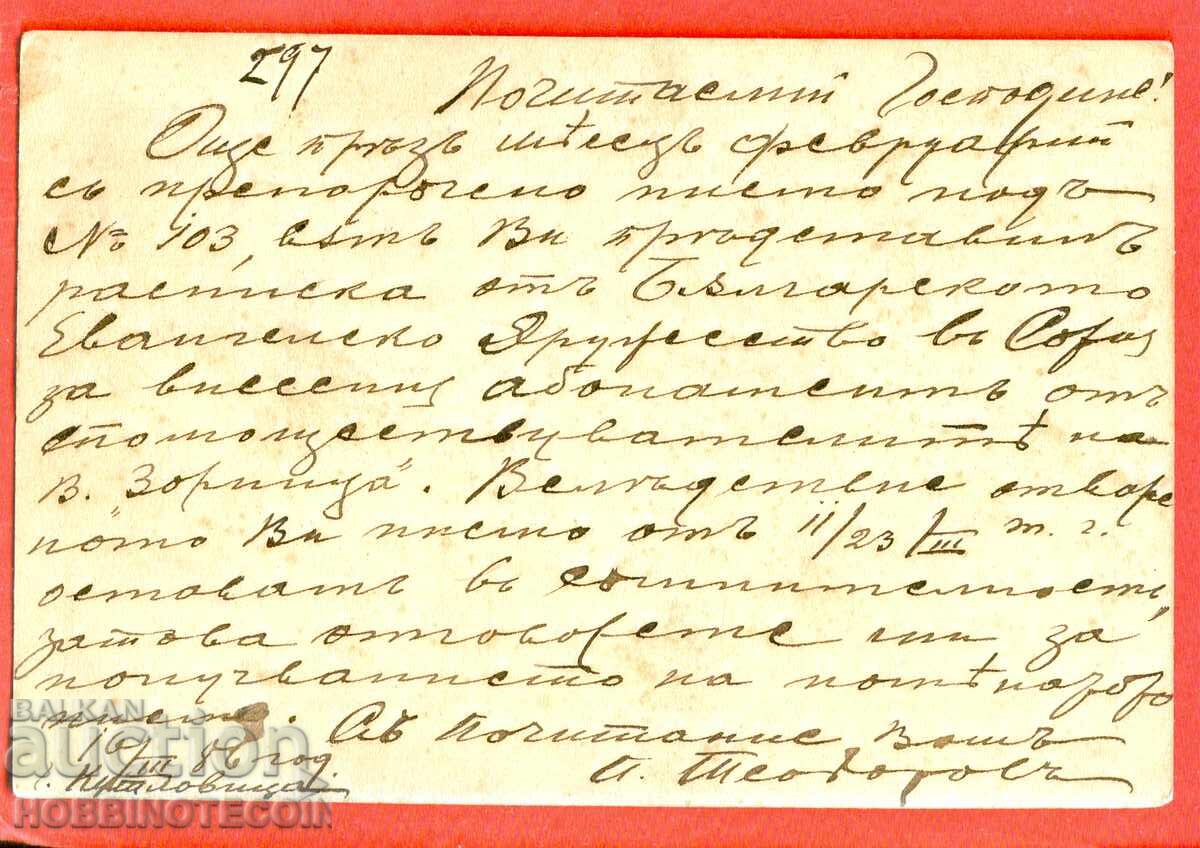 297
Почитаемий Господине!
Още прѣзъ мѣсецъ февруарий
съ препоръчено писмо подъ
№ 103, Ви прѣдставихъ
расписка отъ Българското
Евангелско Дружество въ София
за внесения абонаментъ отъ
спомоществувателитѣ на
в. "Зорница". Вслѣдствие отворе
ното Ви писмо отъ 11/23/III т. г.
оставамъ въ сомнителность,
затова отговорете ми за
получванието на
писмо. Съ Почитание Вашъ
16/III 86 год. П. Теодоровъ
г. Кутловица
BALKAN
auction
HOBBINOTECOIN